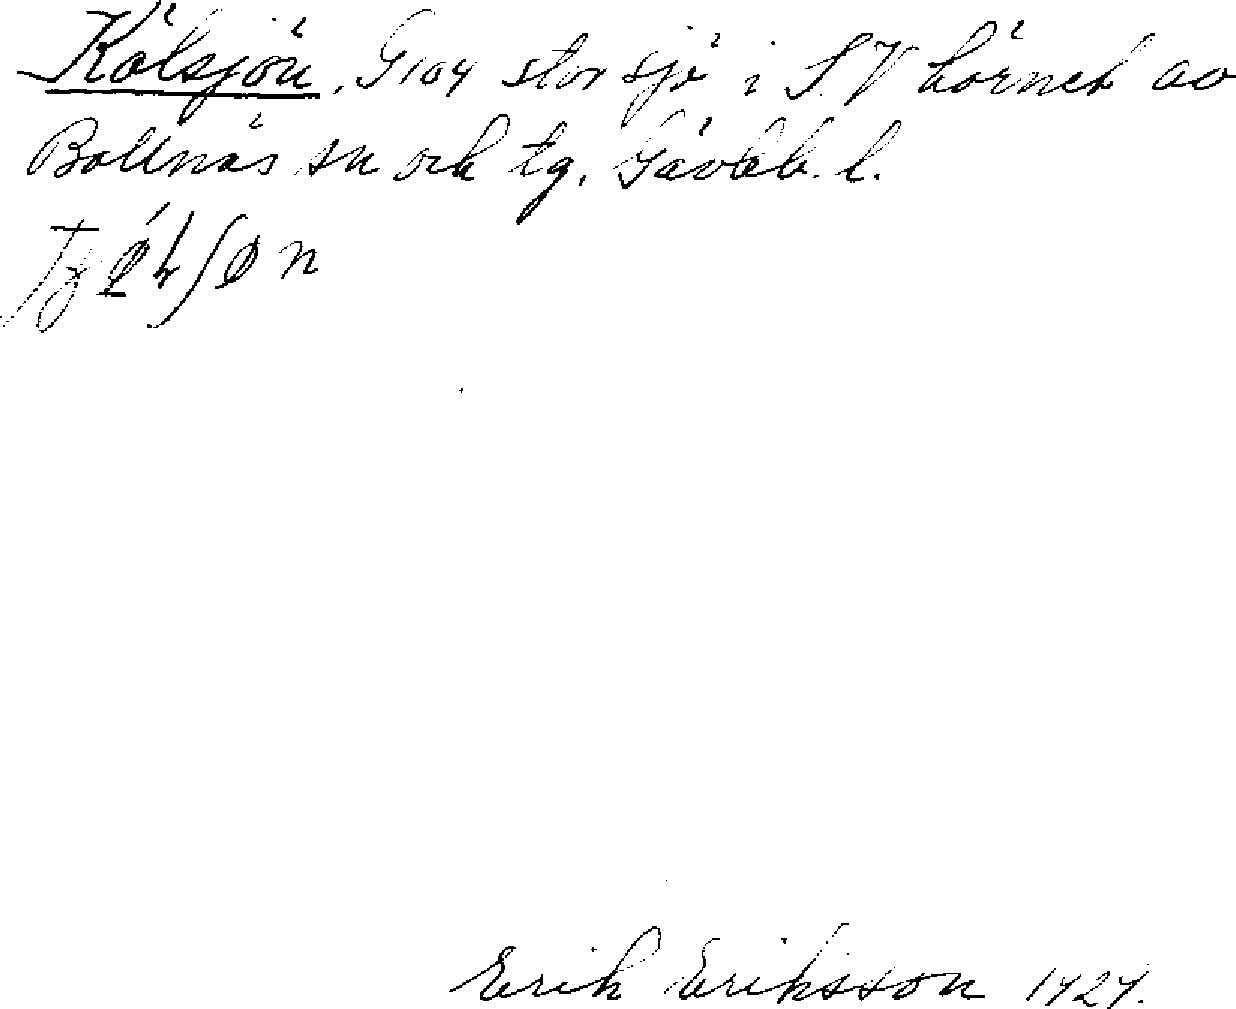 Kölsjön, G104 stor sjö i S.V hörnet av
Bollnäs sn och tg. Gävleb. l.
Erik Eriksson 1927.